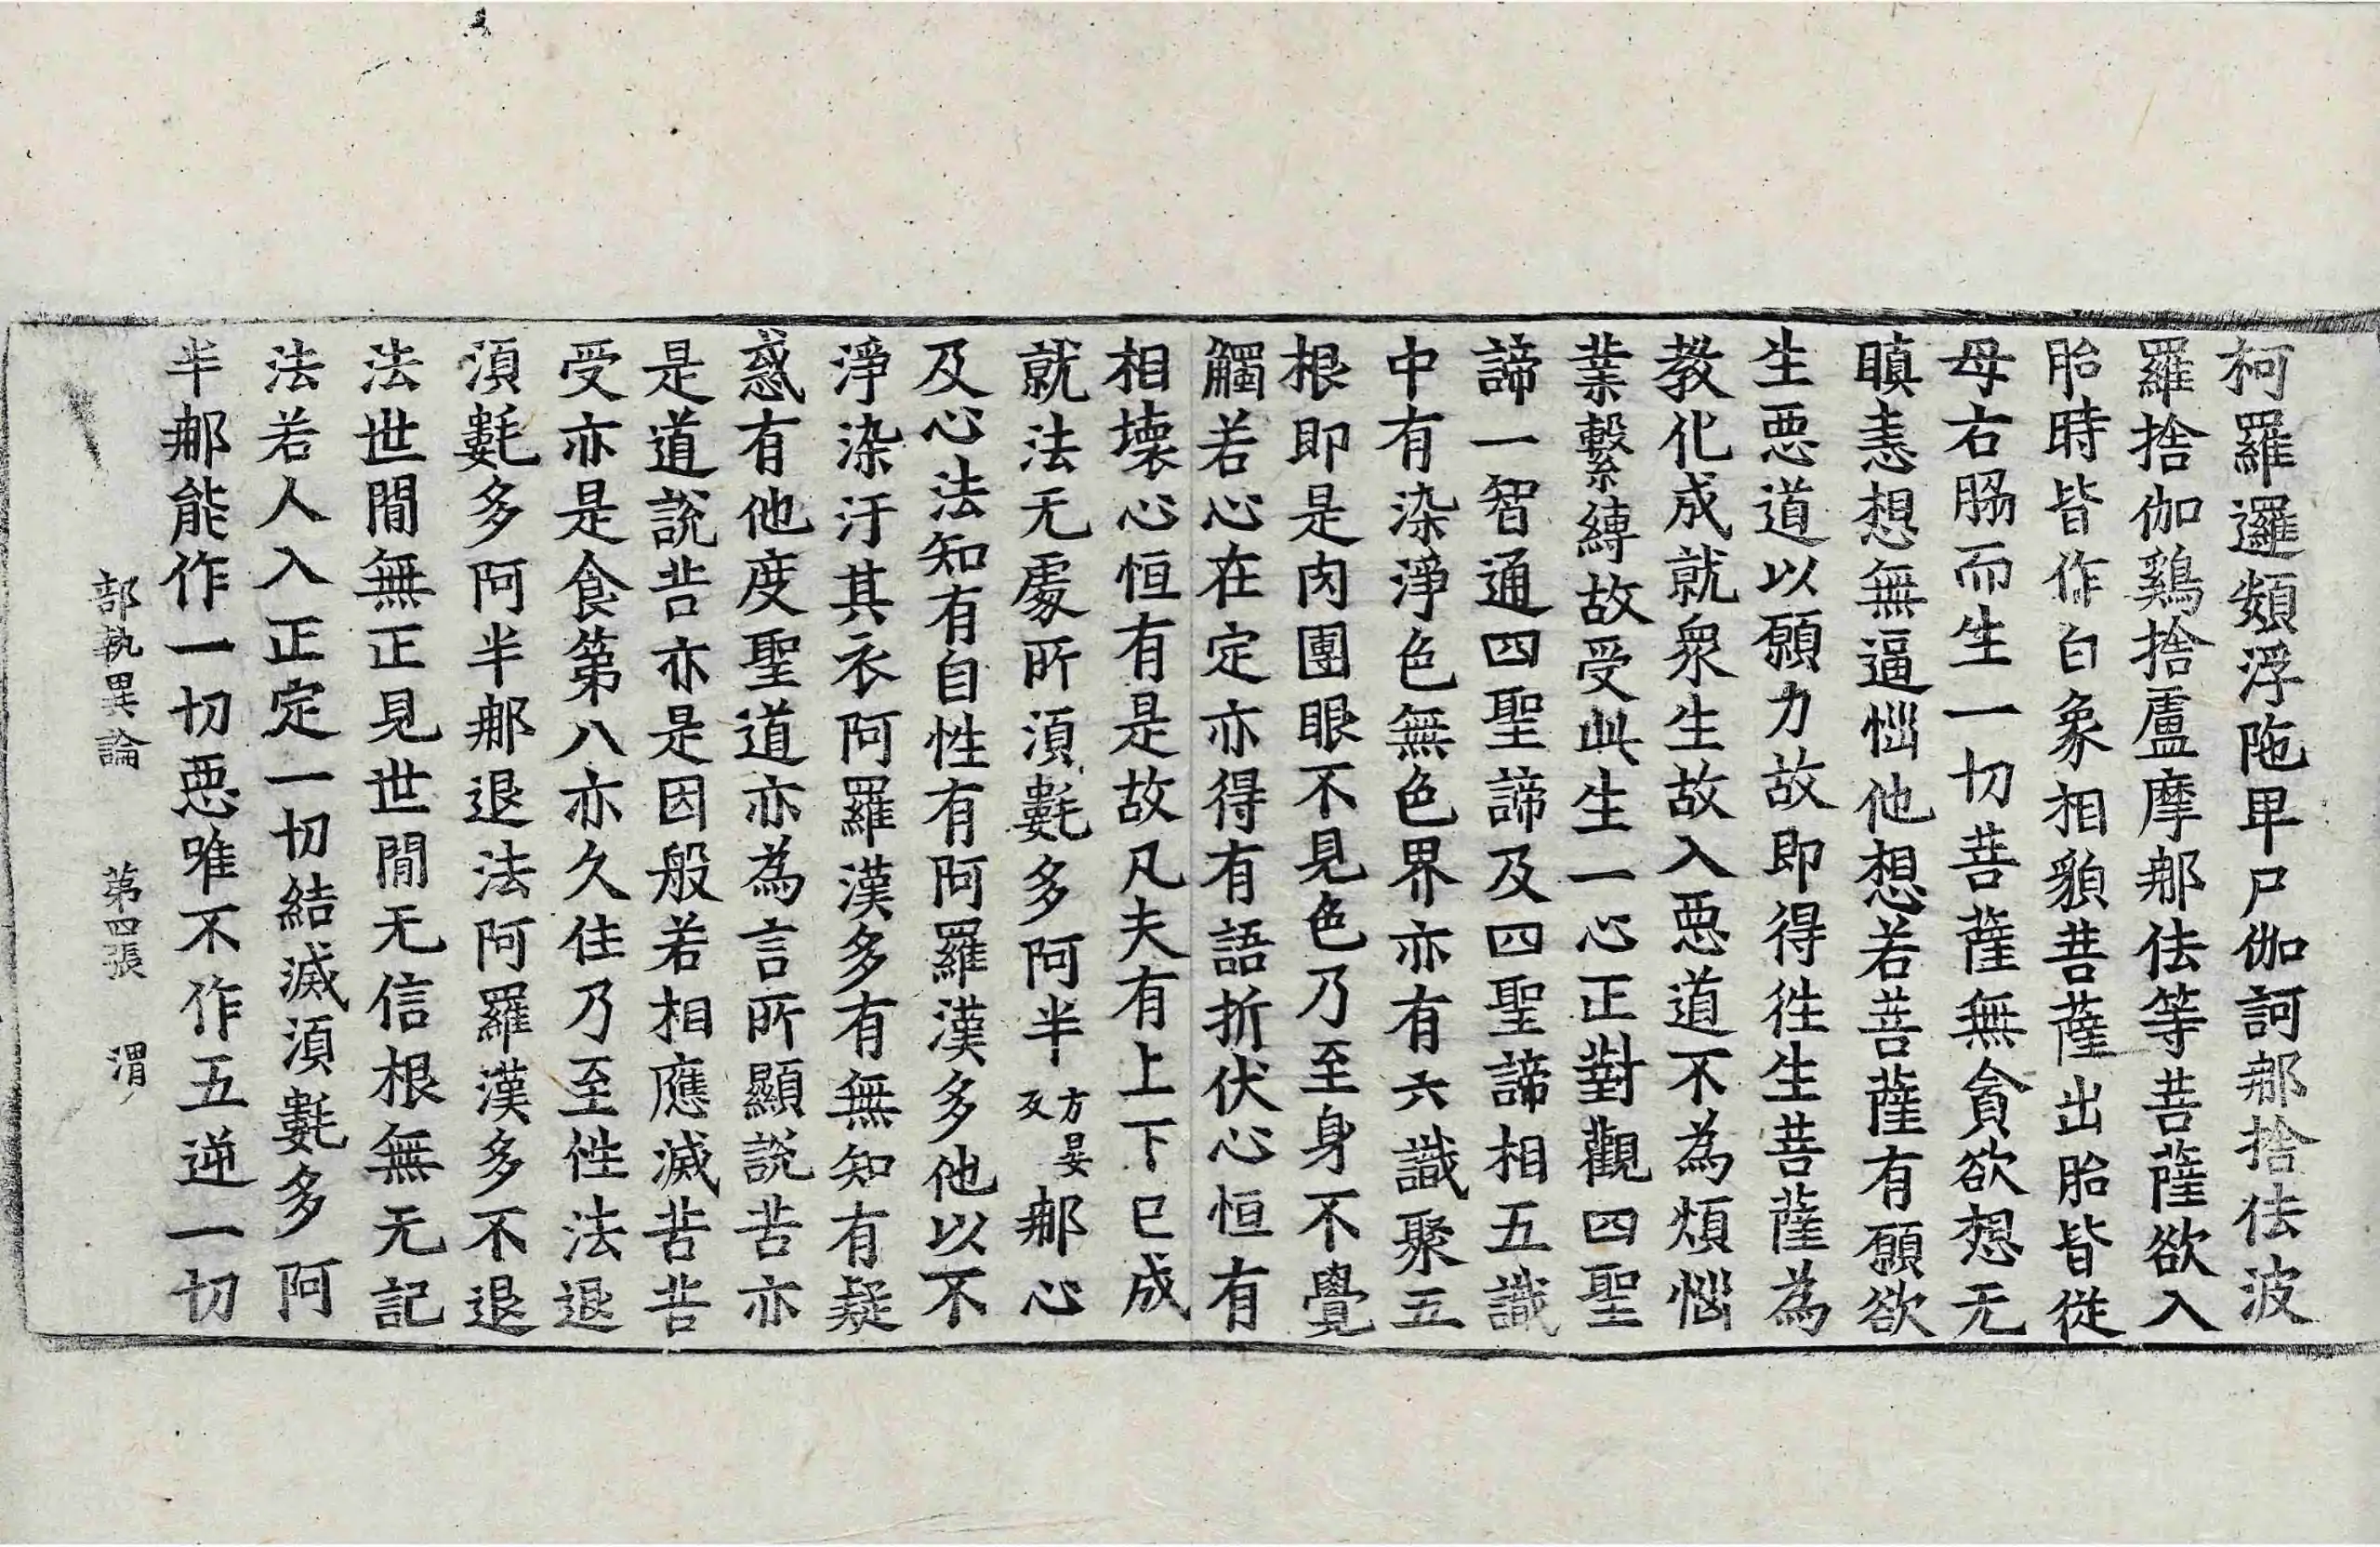 柯羅邏頞浮陁卑尸伽訶那捨佉波
羅捨伽鷄捨盧摩那佉等菩薩欲入
胎時皆作白象相貌菩薩出胎皆從
母右脇而生一切菩薩無貪欲想无
瞋恚想無逼惱他想若菩薩有願欲
生惡道以願力故即得徃生菩薩為
教化成就衆生故入惡道不為煩惱
業繫縛故受此生一心正對觀四聖
諦一智通四聖諦及四聖諦相五識
中有染淨色無色界亦有六識聚五
根即是肉團眼不見色乃至身不覺
觸若心在定亦得有語折伏心恒有
相壞心恒有是故凡夫有上下已成
就法无處所湏氀多阿半方晏反那心
及心法知有自性有阿羅漢多他以不
淨染汙其衣阿羅漢多有無知有疑
惑有他度聖道亦為言所顯説苦亦
是道説苦亦是因般若相應滅苦苦
受亦是食第八亦久住乃至性法退
湏氀多阿半那退法阿羅漢多不退
法世間無正見世間无信根無无記
法若人入正定一切結滅湏氀多阿
半那能作一切惡唯不作五逆一切
部執異論 第四張 渭